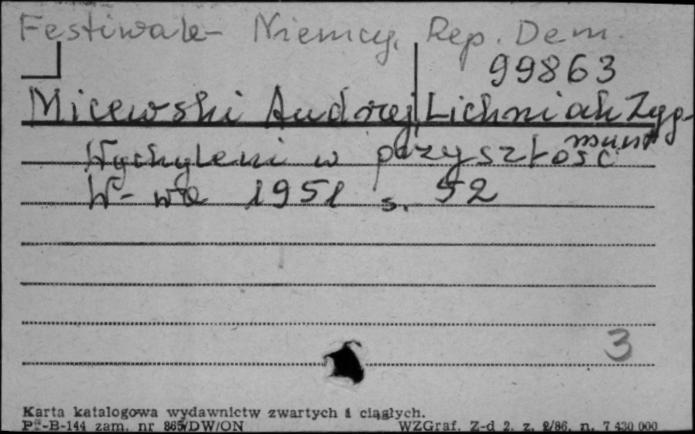 Festiwale - Niemcy, Rep. Dem.
99863
Micewski Andrzej Lichniak Zyg-
munt
Wychyleni w przyszłość
W-wa 1951 s. 52
3
Karta katalogowa wydawnictw zwartych i ciągłych.
Pu-B-144 zam. nr 865/DW/ON WZGraf. Z-d 2, z. 2/86, n. 7 430 000